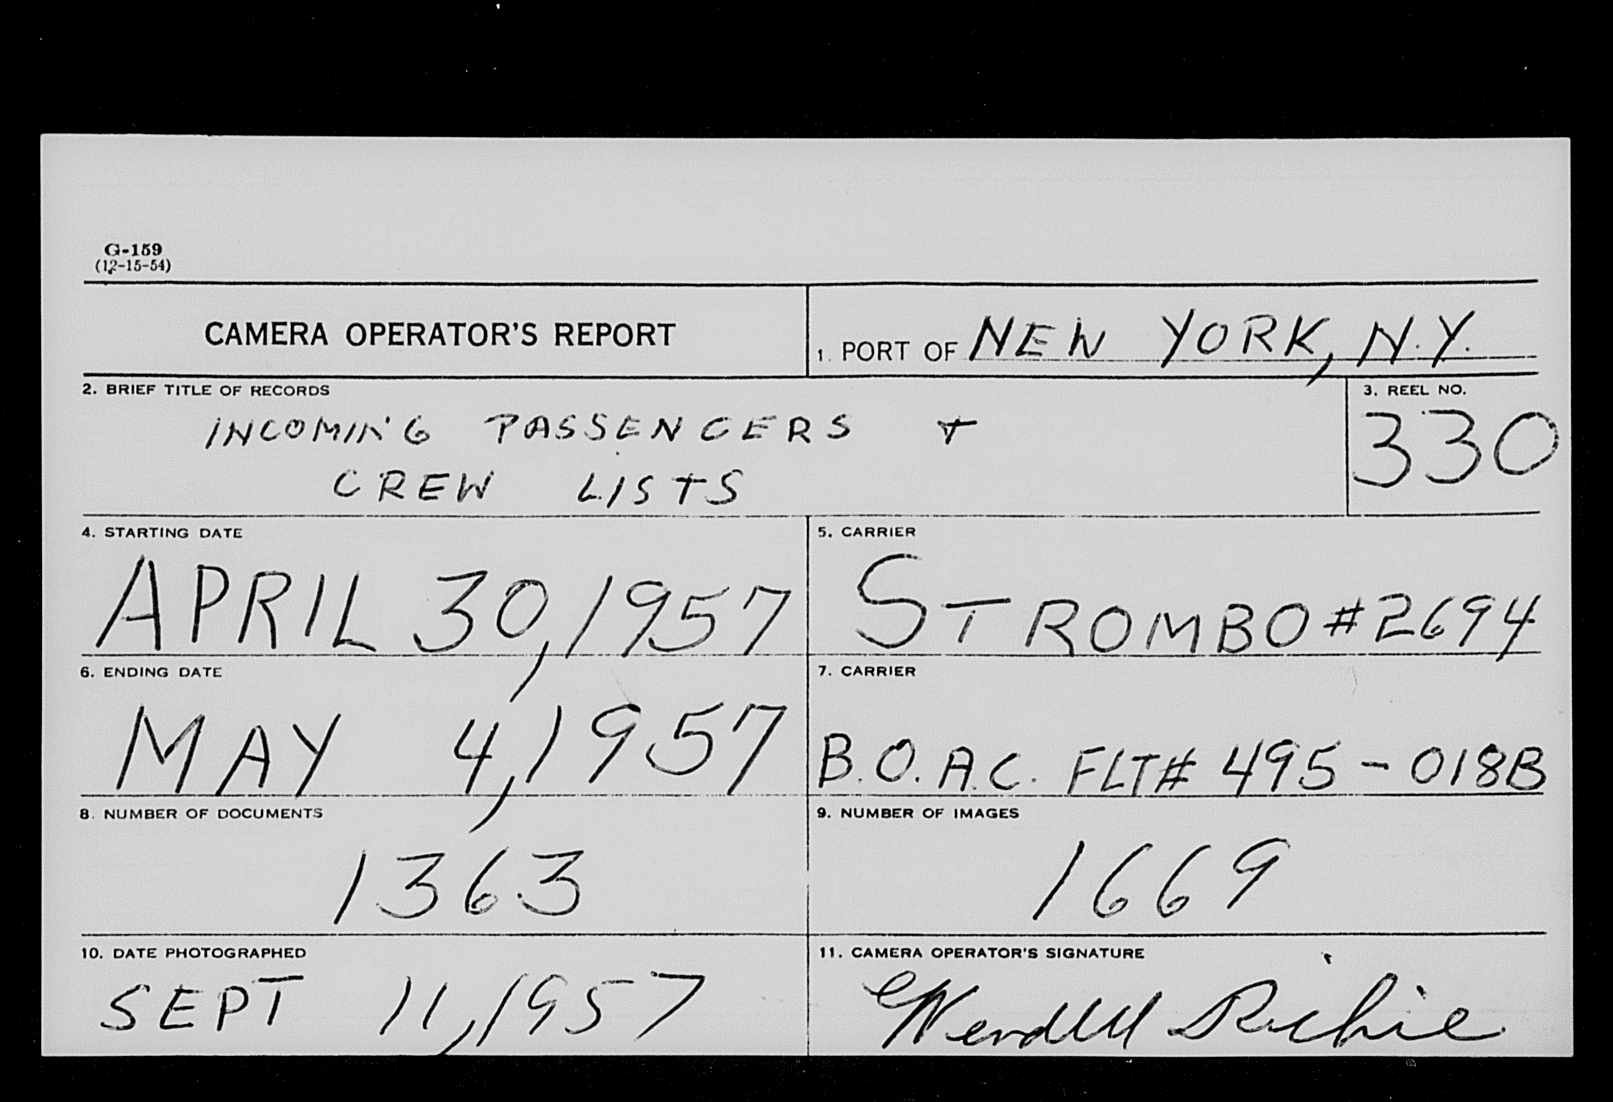 G-159
(12-15-54)
CAMERA OPERATOR'S REPORT
1. PORT OF NEW YORK, N.Y.
2. BRIEF TITLE OF RECORDS
INCOMING PASSENGERS +
CREW LISTS
3. REEL NO.
330
4. STARTING DATE
APRIL 30, 1957
5. CARRIER
STROMBO #2694
6. ENDING DATE
MAY 4, 1957
7. CARRIER
B.O.A.C. FLT# 495-018B
8. NUMBER OF DOCUMENTS
1363
9. NUMBER OF IMAGES
1669
10. DATE PHOTOGRAPHED
SEPT 11, 1957
11. CAMERA OPERATOR'S SIGNATURE
Wendell Richie